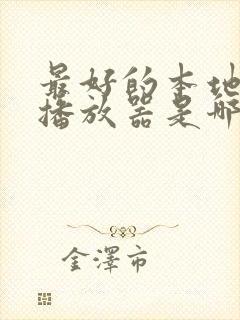 最好的本地
播放器是哪
金澤市